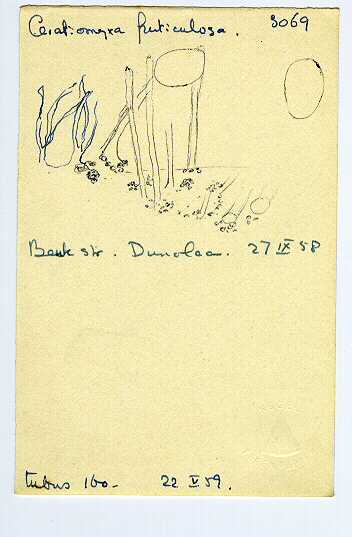 Ceratiomyxa fruticulosa. 3069
Bank str. Dunolaa. 27 IX 58
tubus 160- 22 V 59.